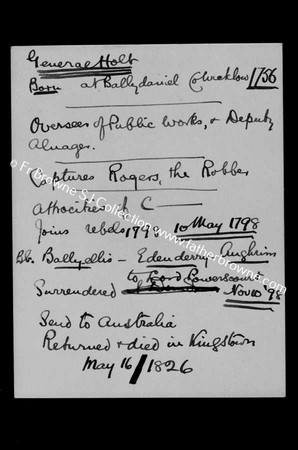 General Holt
Born at Ballydaniel Co Wicklow 1756
Overseer of Public Works, & Deputy
Alnager.
Captures Rogers, the Robber
Atrocities of C——
Joins rebels 1798 10 May 1798
Bb. Ballyellis - Edenderry Aughrim
to Lord Powerscourt
Surrendered Nov 10 '98
Send to Australia
Returned & died in Kingstown
May 16/1826
© Fr Browne S.J. Collection
www.fatherbrowne.com